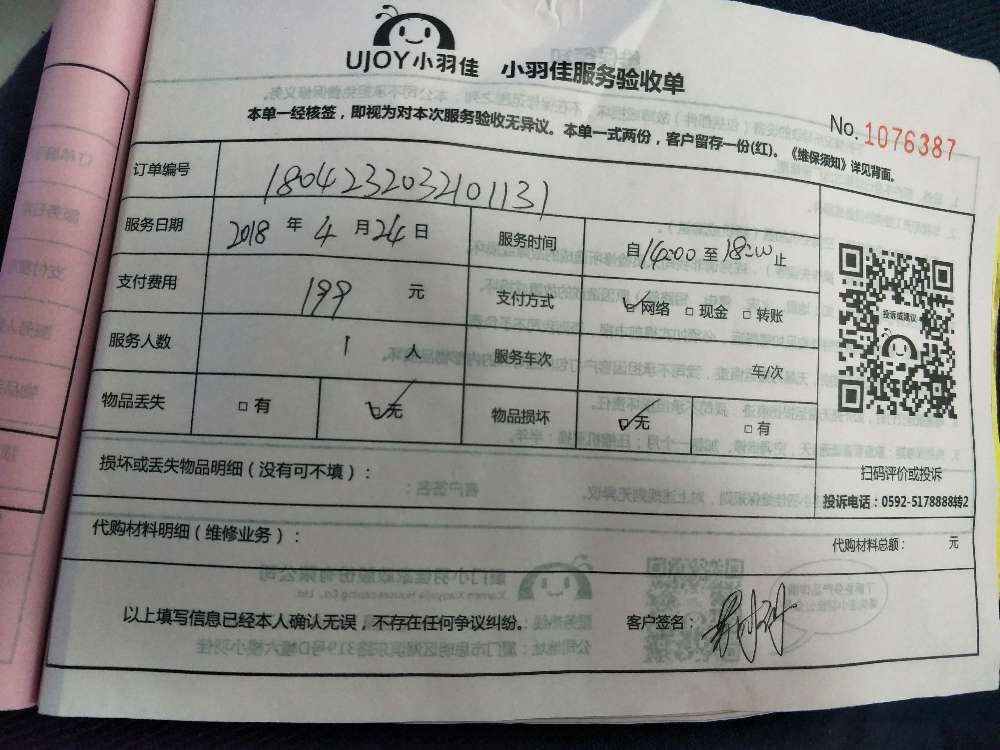 UJOY小羽佳 小羽佳服务验收单
本单一经核签，即视为对本次服务验收无异议。本单一式两份，客户留存一份(红)。《维保须知》详见背面。
No. 1076387
订单编号 1804232032101131
服务日期 2018 年 4 月 24 日 服务时间 自 14:00 至 18:00 止
支付费用 199 元 支付方式 ☑网络 □现金 □转账
服务人数 1 人 服务车次 车/次
物品丢失 □有 ☑无 物品损坏 ☑无 □有
投诉或建议
扫码评价或投诉
投诉电话：0592-5178888转2
损坏或丢失物品明细（没有可不填）：
代购材料明细（维修业务）：
代购材料总额： 元
以上填写信息已经本人确认无误，不存在任何争议纠纷。 客户签名：